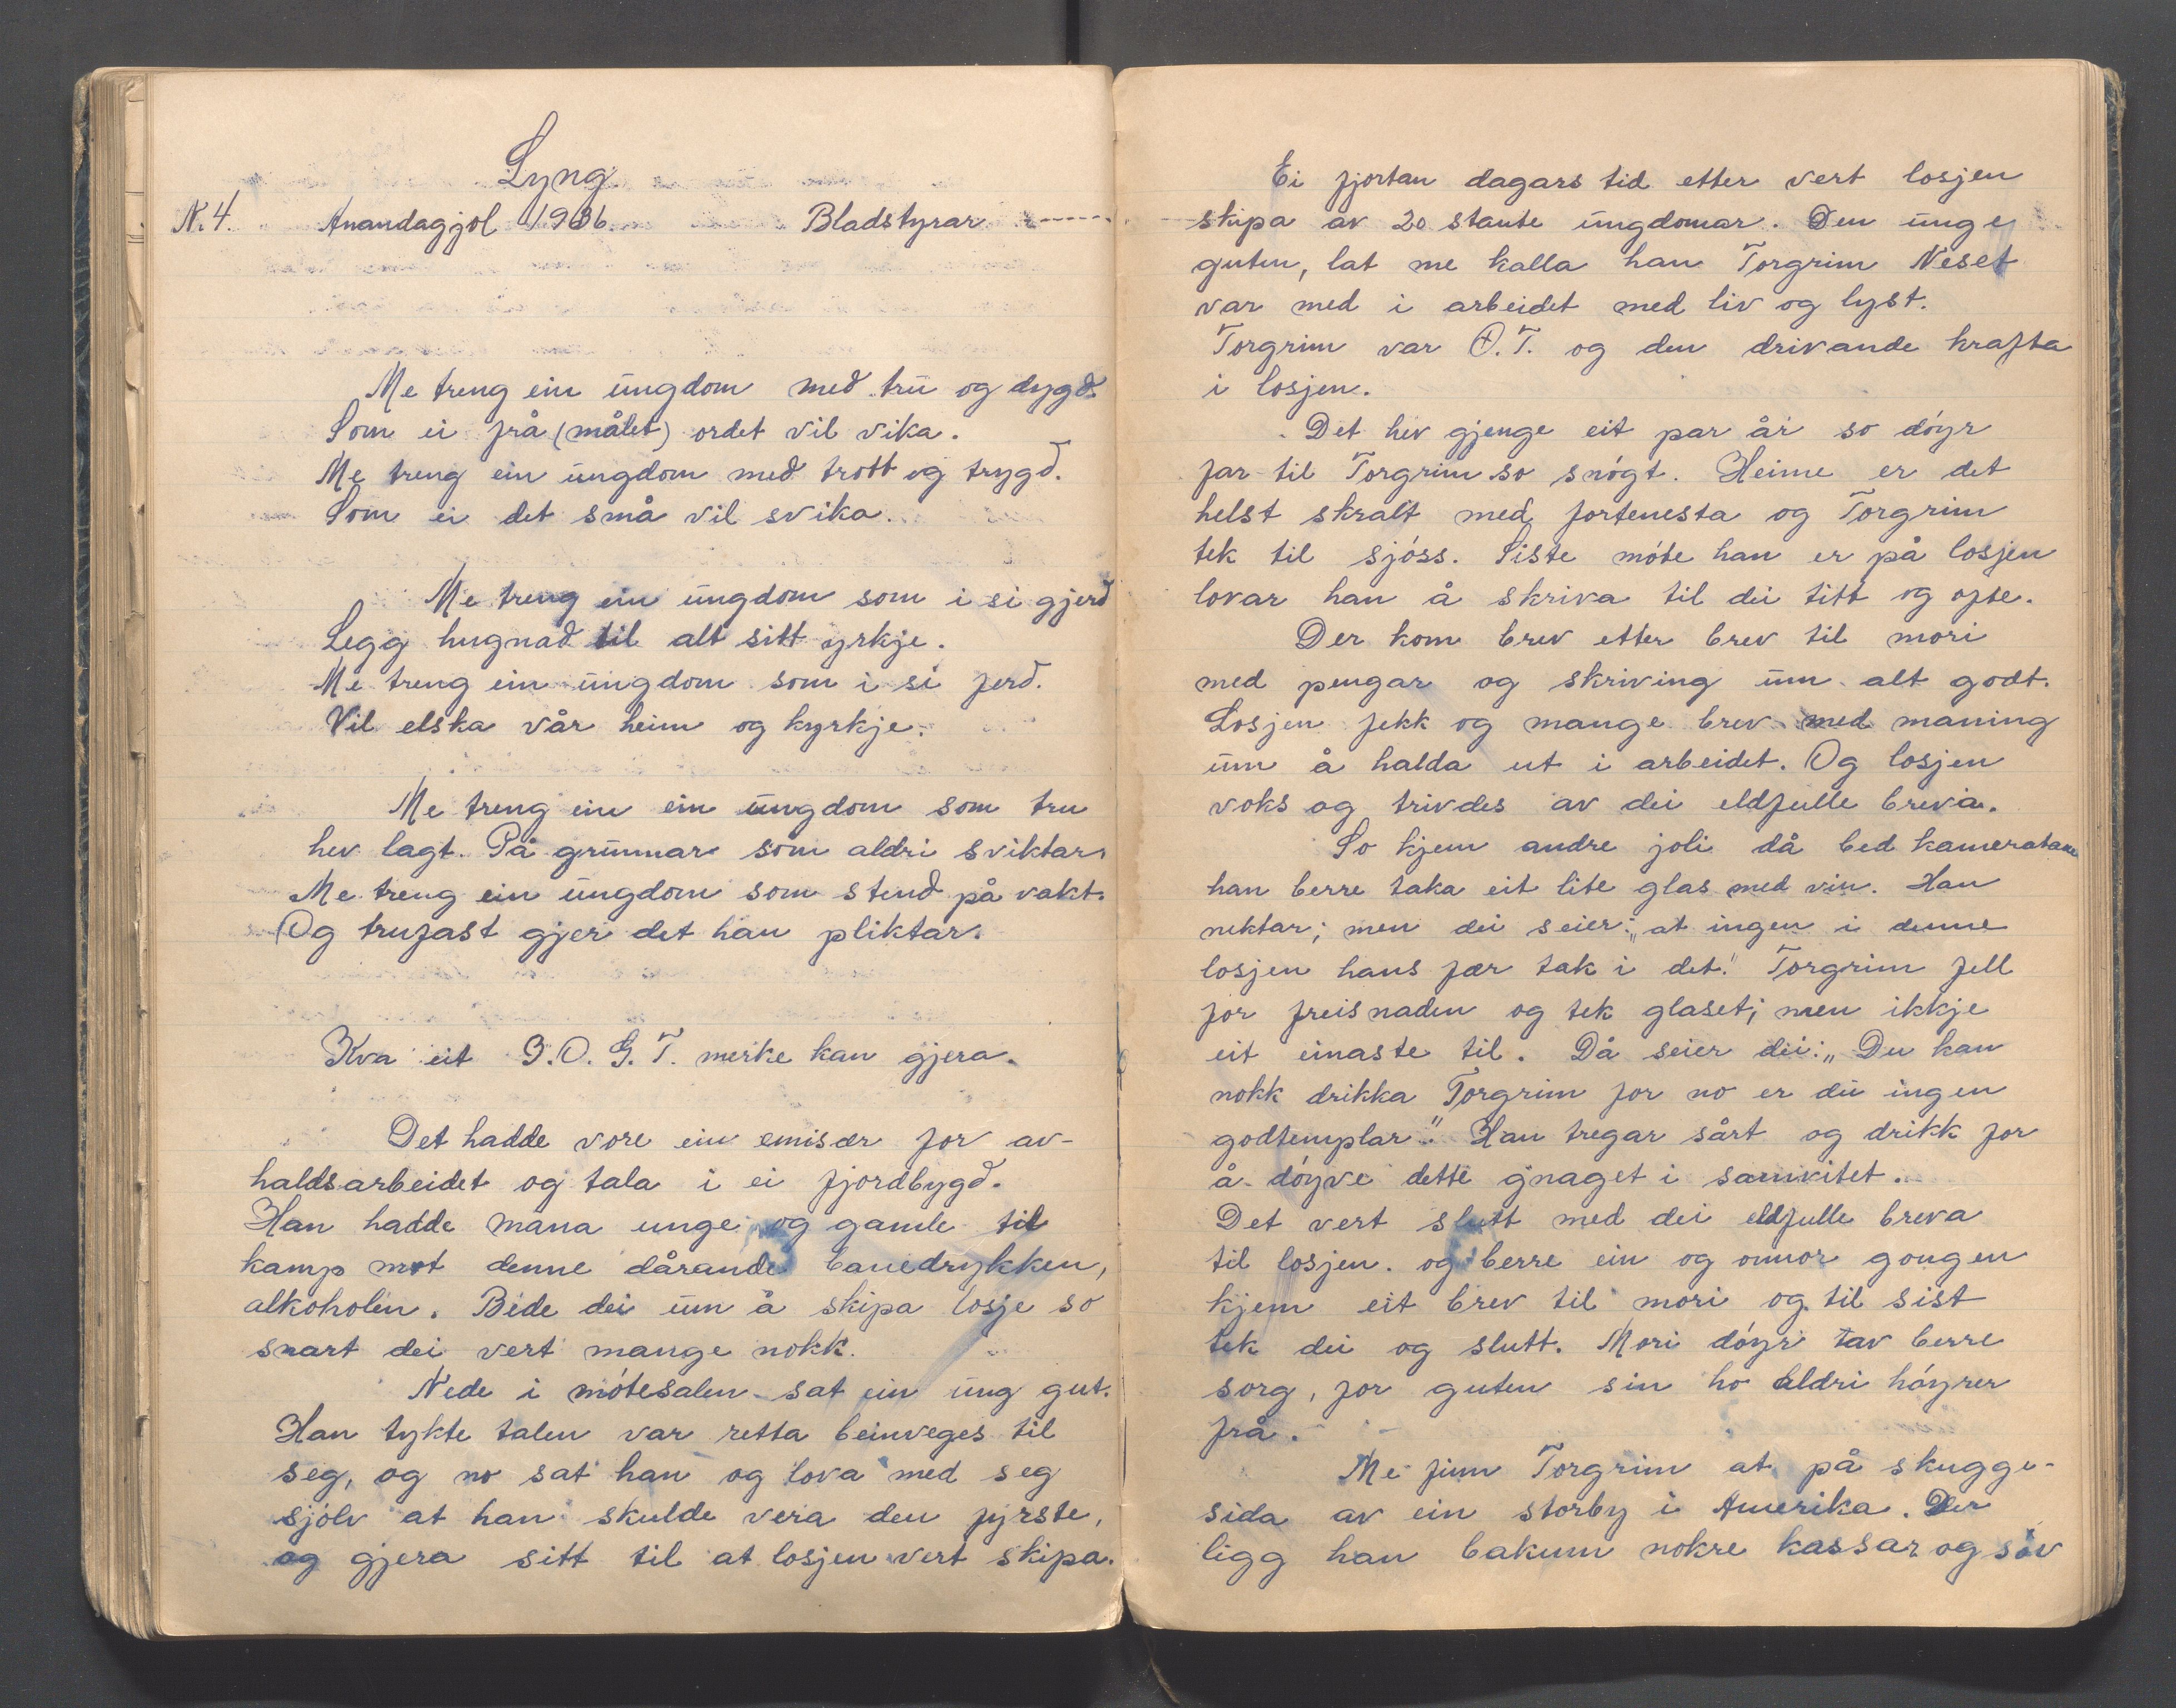 Lyng
N. 4. Anandagjol 1936. Bladstyrar -----
Me treng ein ungdom med tru og dygd.
Som ei frå (målet) ordet vil vika.
Me treng ein ungdom med trott og trygd.
Som ei det små vil svika.
Me treng ein ungdom som i si gjerd
Legg hugnad til alt sitt yrkje.
Me treng ein ungdom som i si ferd.
Vil elska vår heim og kyrkje.
Me treng ein ein ungdom som tru
hev lagt. På grunnar som aldri sviktar
Me treng ein ungdom som stend på vakt.
Og trufast gjer det han pliktar.
Kva eit I.O.G.T. merke kan gjera.
Det hadde vore ein emisær for av-
haldsarbeidet og tala i ei fjordbygd.
Han hadde mana unge og gamle til
kamp mot denne dårande banedrykken,
alkoholen. Bede dei um å skipa losje so
snart dei vert mange nokk.
Nede i mótesalen sat ein ung gut.
Han tykte talen var retta beinveges til
seg, og no sat han og lova med seg
sjólv at han skulde vera den fyrste,
og gjera sitt til at losjen vert skipa.
Ei fjortan dagars tid etter vert losjen
skipa av 20 staute ungdomar. Den unge
guten, lat me kalla han Torgrim Neset
var med i arbeidet med liv og lyst.
Torgrim var O.T. og den drivande krafta
i losjen.
Det hev gjenge eit par år so dóyr
far til Torgrim so snógt. Heime er det
helst skralt med fortenesta og Torgrim
tek til sjóss. Siste móte han er på losjen
lovar han å skriva til dei titt og ofte.
Der kom brev etter brev til mori
med pengar og skriving um alt godt.
Losjen fekk og mange brev med maning
um å halda ut i arbeidet. Og losjen
voks og trivdes av dei eldfulle breva.
So kjem andre joli då bed kameratane
han berre taka eit lite glas med vin. Han
nektar; men dei seier: „at ingen i denne
losjen hans fær tak i det." Torgrim fell
for freisnaden og tek glaset; men ikkje
eit einaste til. Då seier dei: „Du kan
nokk drikka Torgrim for no er du ingen
godtemplar." Han tregar sårt og drikk for
å dóyve dette gnaget i samvitet.
Det vert slutt med dei eldfulle breva
til losjen. og berre ein og onnor gongen
kjem eit brev til mori og til sist
tek dei og slutt. Mori dóyr tav berre
sorg, for guten sin ho aldri hóyrer
frå.
Me finn Torgrim at på skugge-
sida av ein storby i Amerika. Der
ligg han bakum nokre kassar og sóv